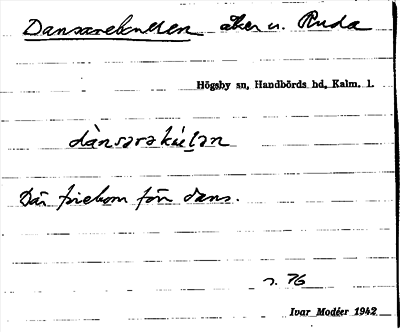 Dansarekullen åker u. Ruda
Högsby sn, Handbörds hd, Kalm. l.
dànsarakúlən
Där förekom förr dans.
s. 76
Ivar Modéer 1942